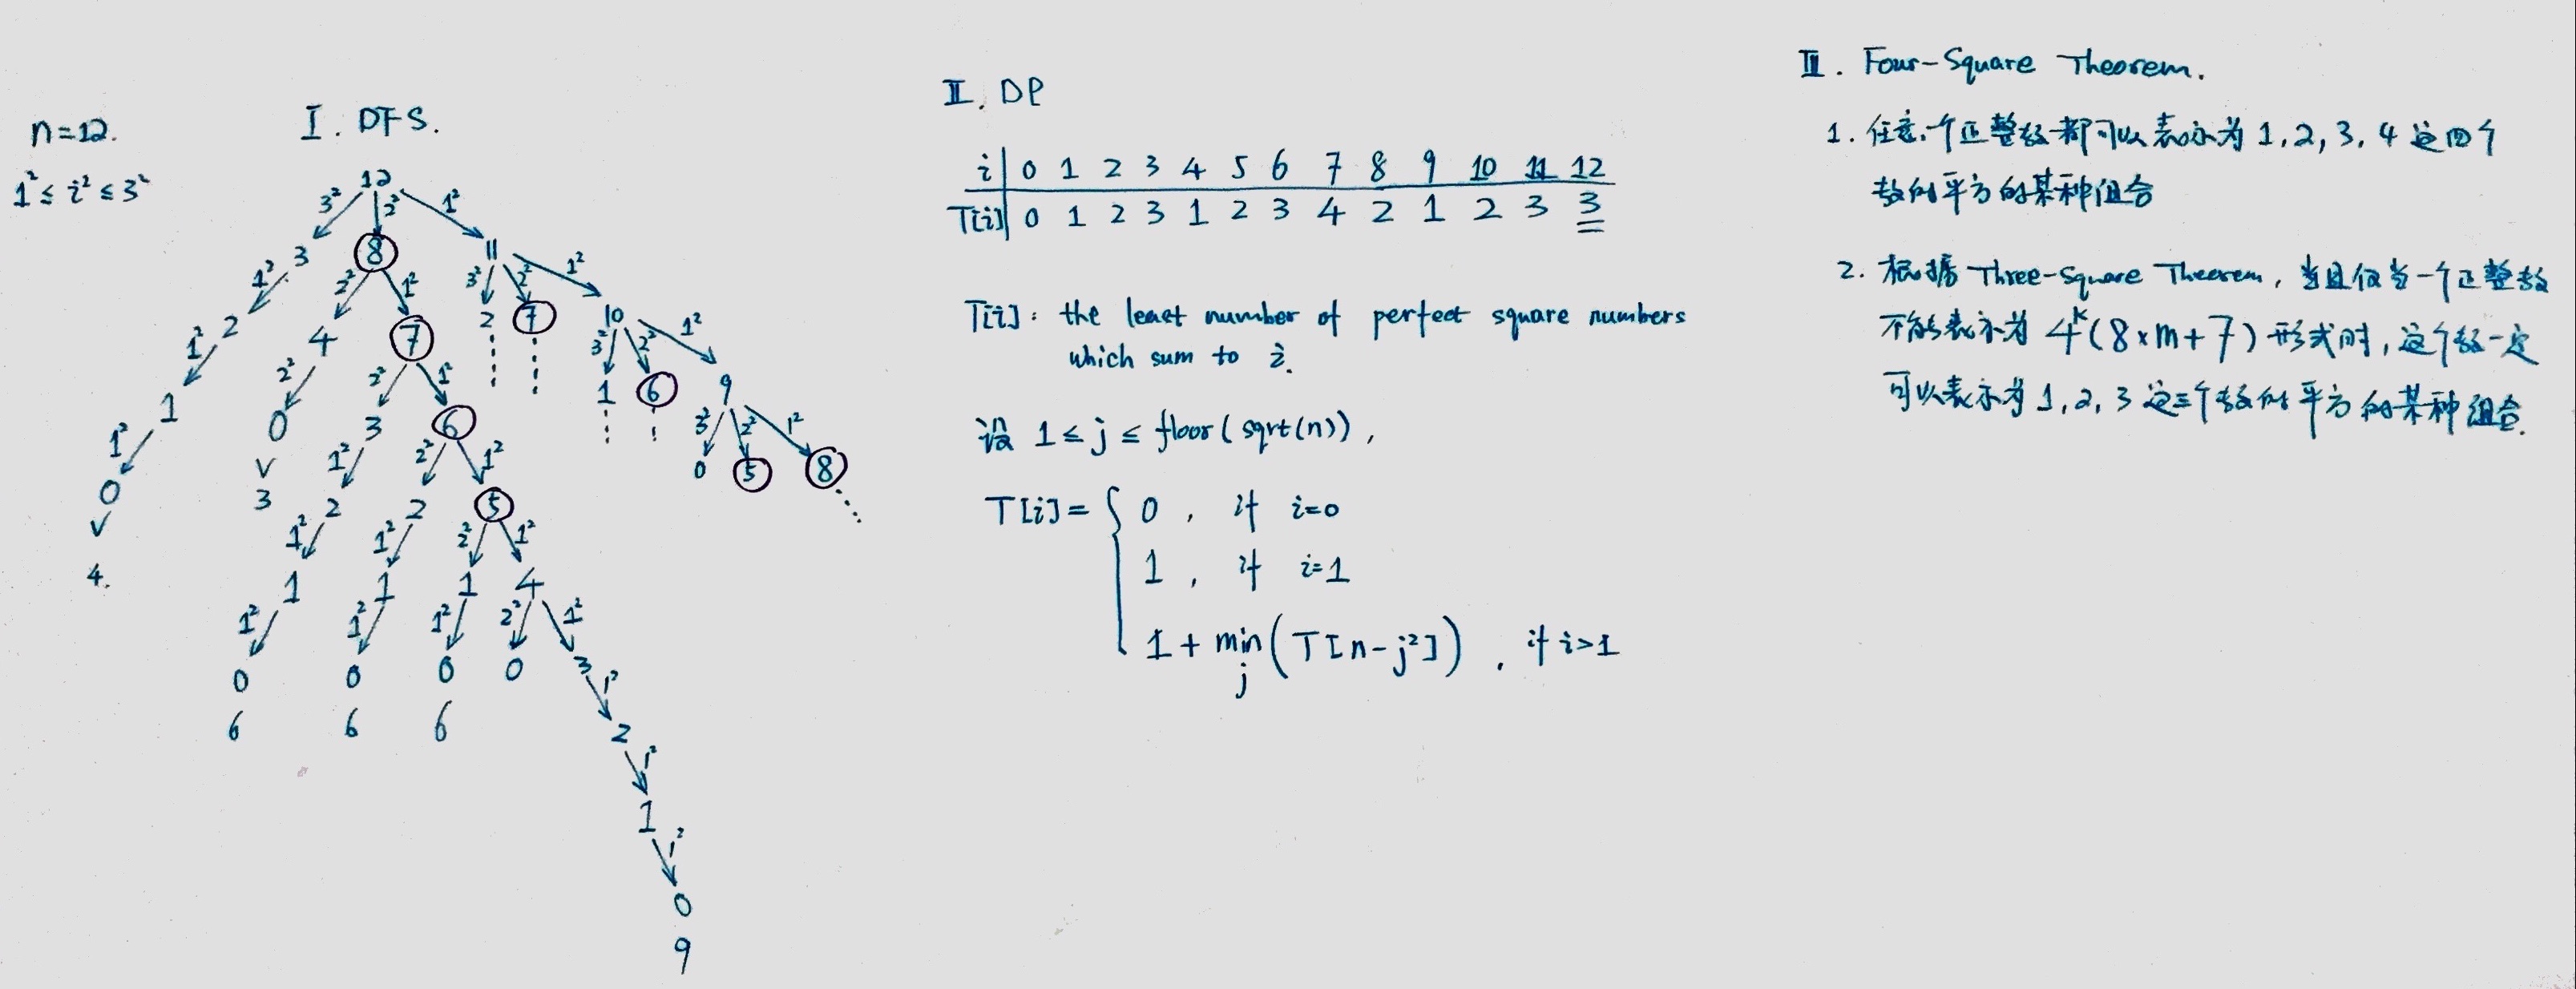 n=12.
1² ≤ i² ≤ 3²
I. DFS.
12
3² 2² 1²
3 8 11
1² 2² 1² 3² 2² 1²
2 4 7 2 7 10
1² 2² 2² 1² 3² 2² 1²
1 0 3 6 1 6 9
1² 1² 2² 1² 3² 2² 1²
0 v 2 2 5 0 5 8
v 3 1² 1² 2² 1²
4. 1 1 1 4
1² 1² 1² 2² 1²
0 0 0 0 3
6 6 6 1²
2
1²
1
1²
0
9
II. DP
i 0 1 2 3 4 5 6 7 8 9 10 11 12
T[i] 0 1 2 3 1 2 3 4 2 1 2 3 3
T[i]: the least number of perfect square numbers
which sum to i.
设 1 ≤ j ≤ floor(sqrt(n)),
T[i] = { 0, if i=0
1, if i=1
1 + min(T[n-j²]), if i>1
j
III. Four-Square Theorem.
1. 任意一个正整数都可以表示为 1, 2, 3, 4 这四个
数的平方的某种组合
2. 根据 Three-Square Theorem, 当且仅当一个正整数
不能表示为 4ᵏ(8×m+7) 形式时, 这个数一定
可以表示为 1, 2, 3 这三个数的平方的某种组合.